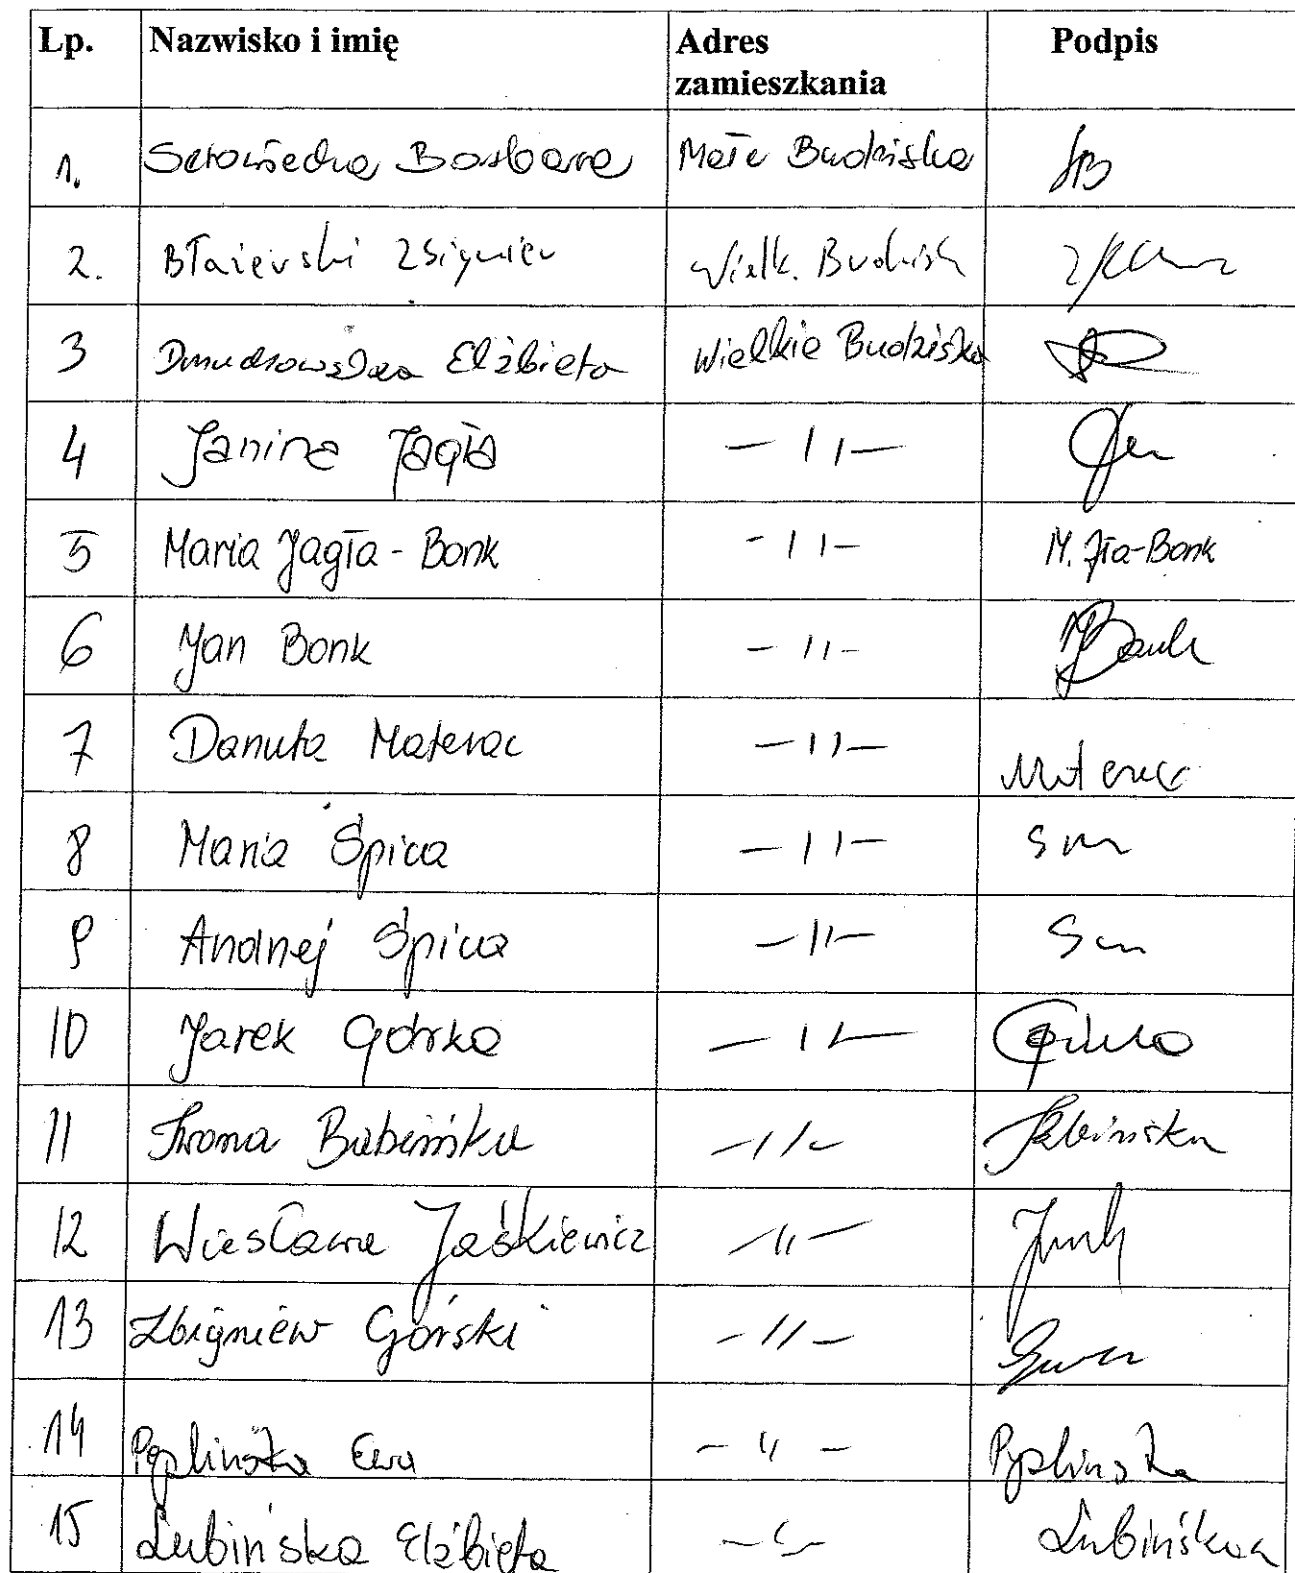 Lp. Nazwisko i imię Adres zamieszkania Podpis
1. Barbara Małe Budziska
2. Błażewski Zbigniew Wielk. Budzisk
3 Elżbieta Wielkie Budziska
4 Janina Jagła — 11 —
5 Maria Jagła - Bonk - 11 - M. Jła-Bonk
6 Jan Bonk - 11 - JBonk
7 Danuta Materac — 11 — Materac
8 Maria Śpica — 11 —
9 Andrzej Śpica — 11 —
10 Jarek Górka — 11 — Górka
11 Iwona Babińska - 11 - Babińska
12 Wiesława Jaśkiewicz - 11 -
13 Zbigniew Górski - 11 -
14 Peplińska Ewa - 11 - Peplińska
15 Lubińska Elżbieta - 11 - Lubińska